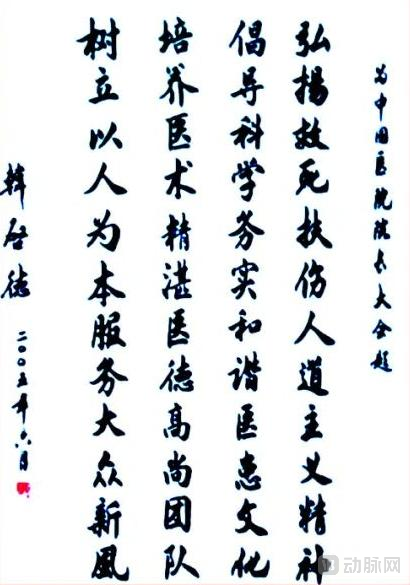 为中国医院院长大会题
弘揚救死扶伤人道主义精神
倡导科学务实和谐医患文化
培养医术精湛医德高尚团队
树立以人为本服务大众新風
韓启德
二〇〇五年六月
动脉网